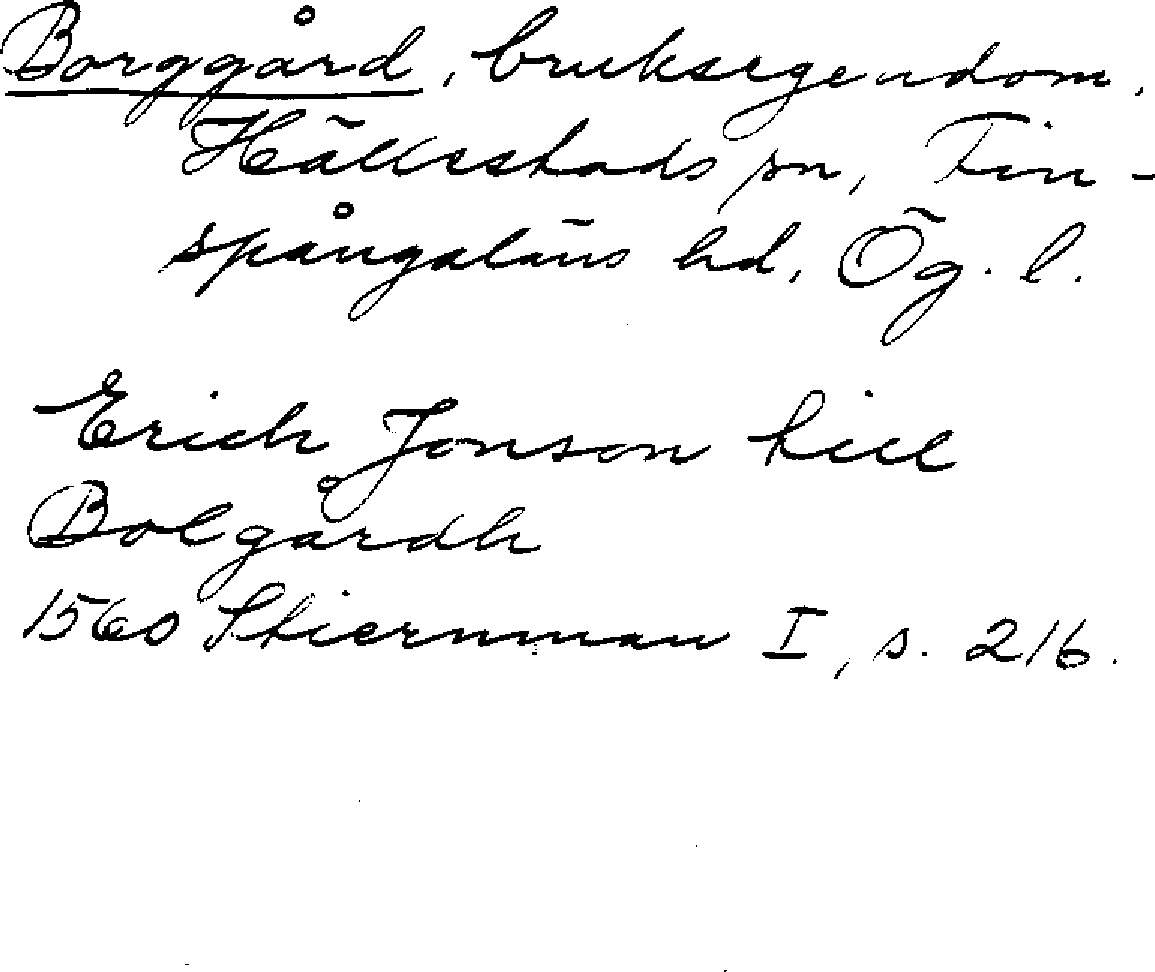 Borggård, bruksegendom,
Hällestads sn, Fin-
spångaläns hd, Ög. l.
Erich Jonson till
Bolgårdh
1560 Stiernman I, s. 216.